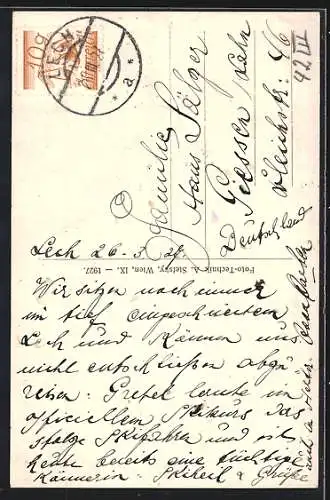 LECH
* a *
Familie
Hans Sälzer
Giessen Lahn
Bleichstr. 46
Deutschland
42 III
Foto-Technik A. Stefsky, Wien, IX — 1927.
Lech 26. 3.
Wir sitzen noch immer
im tief eingeschneiten
Lech und können uns
nicht entschließen abzu
reisen. Gretel lernte im
officiellem Skikurs das
Skifahren und ist
heute bereits eine tüchtige
Kännerin. Skiheil & Grüße